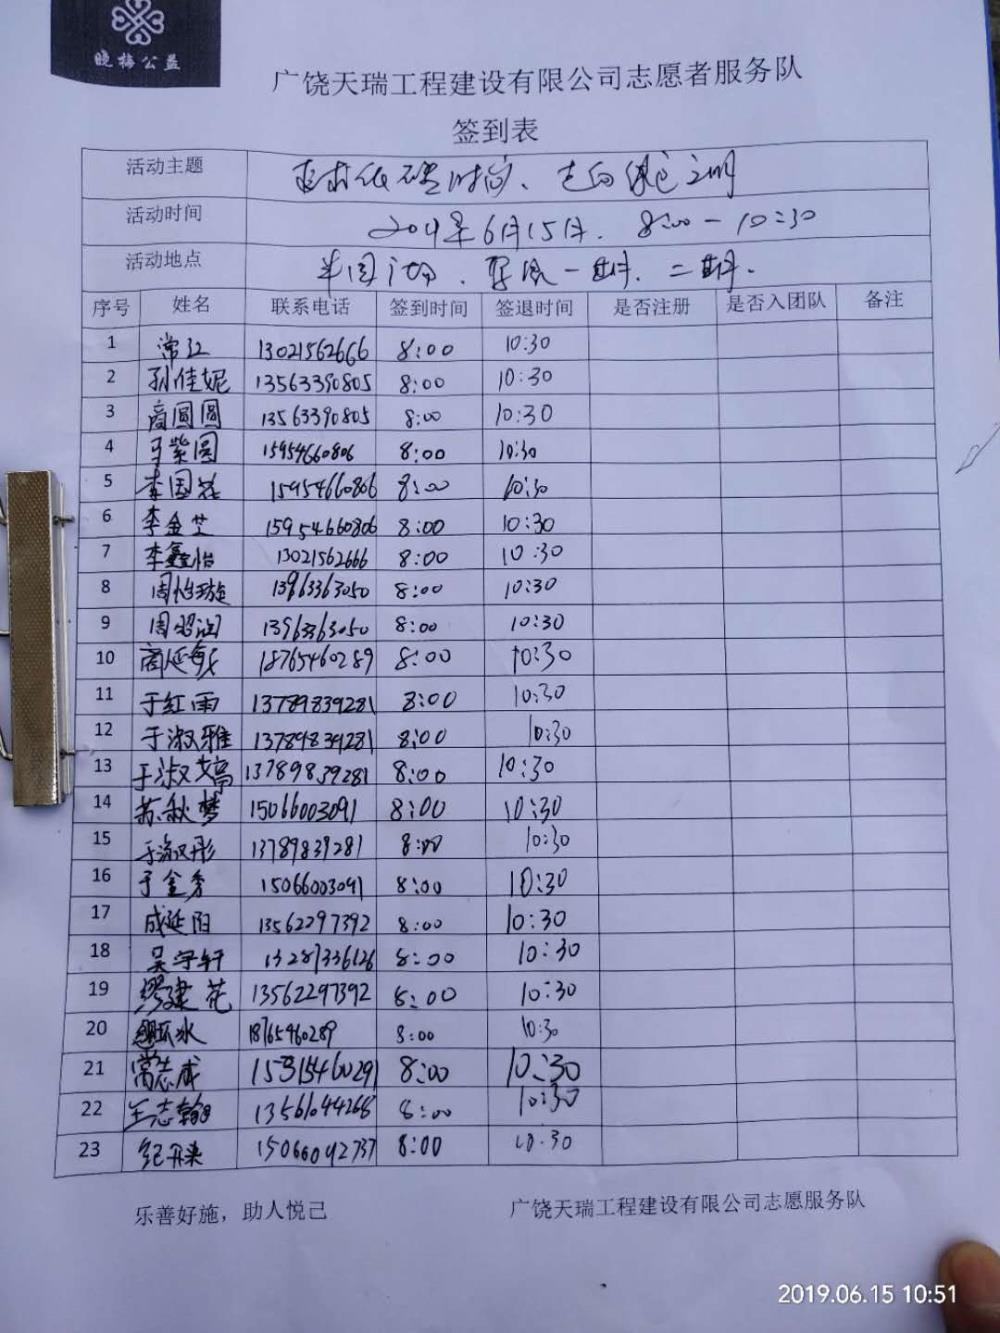 晓梅公益
广饶天瑞工程建设有限公司志愿者服务队
签到表
活动主题 低碳时尚、走向绿色文明
活动时间 2019年6月15日. 8:00-10:30
活动地点 一期. 二期.
序号 姓名 联系电话 签到时间 签退时间 是否注册 是否入团队 备注
1 常江 13021562666 8:00 10:30
2 孙佳妮 13563390805 8:00 10:30
3 商圆圆 13563390805 8:00 10:30
4 马紫圆 15954660806 8:00 10:30
5 李国花 15954660806 8:00 10:30
6 李金芝 15954660806 8:00 10:30
7 李鑫怡 13021562666 8:00 10:30
8 周怡璇 13963363050 8:00 10:30
9 周昭润 13963363050 8:00 10:30
10 商延敏 18765460289 8:00 10:30
11 于红雨 13789839281 8:00 10:30
12 于淑雅 13789839281 8:00 10:30
13 于淑 13789839281 8:00 10:30
14 苏秋梦 15066003091 8:00 10:30
15 于淑彤 13789839281 8:00 10:30
16 于金秀 15066003091 8:00 10:30
17 成延阳 13562297392 8:00 10:30
18 吴宇轩 13287336126 8:00 10:30
19 缪建花 13562297392 8:00 10:30
20 18765460289 8:00 10:30
21 常志成 15315460291 8:00 10:30
22 王志翰 13561044268 8:00 10:30
23 纪丹 15066042737 8:00 10:30
乐善好施，助人悦己 广饶天瑞工程建设有限公司志愿服务队
2019.06.15 10:51